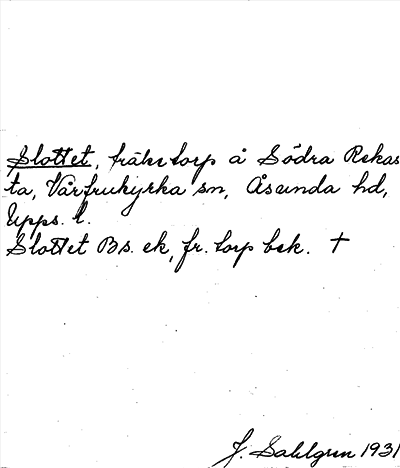 Slottet, frälse torp å Södra Rekas
ta, Vårfrukyrka sn, Åsunda hd,
Upps. l.
Slottet Bs. ek, fr. torp bek. †
J. Sahlgren 1931